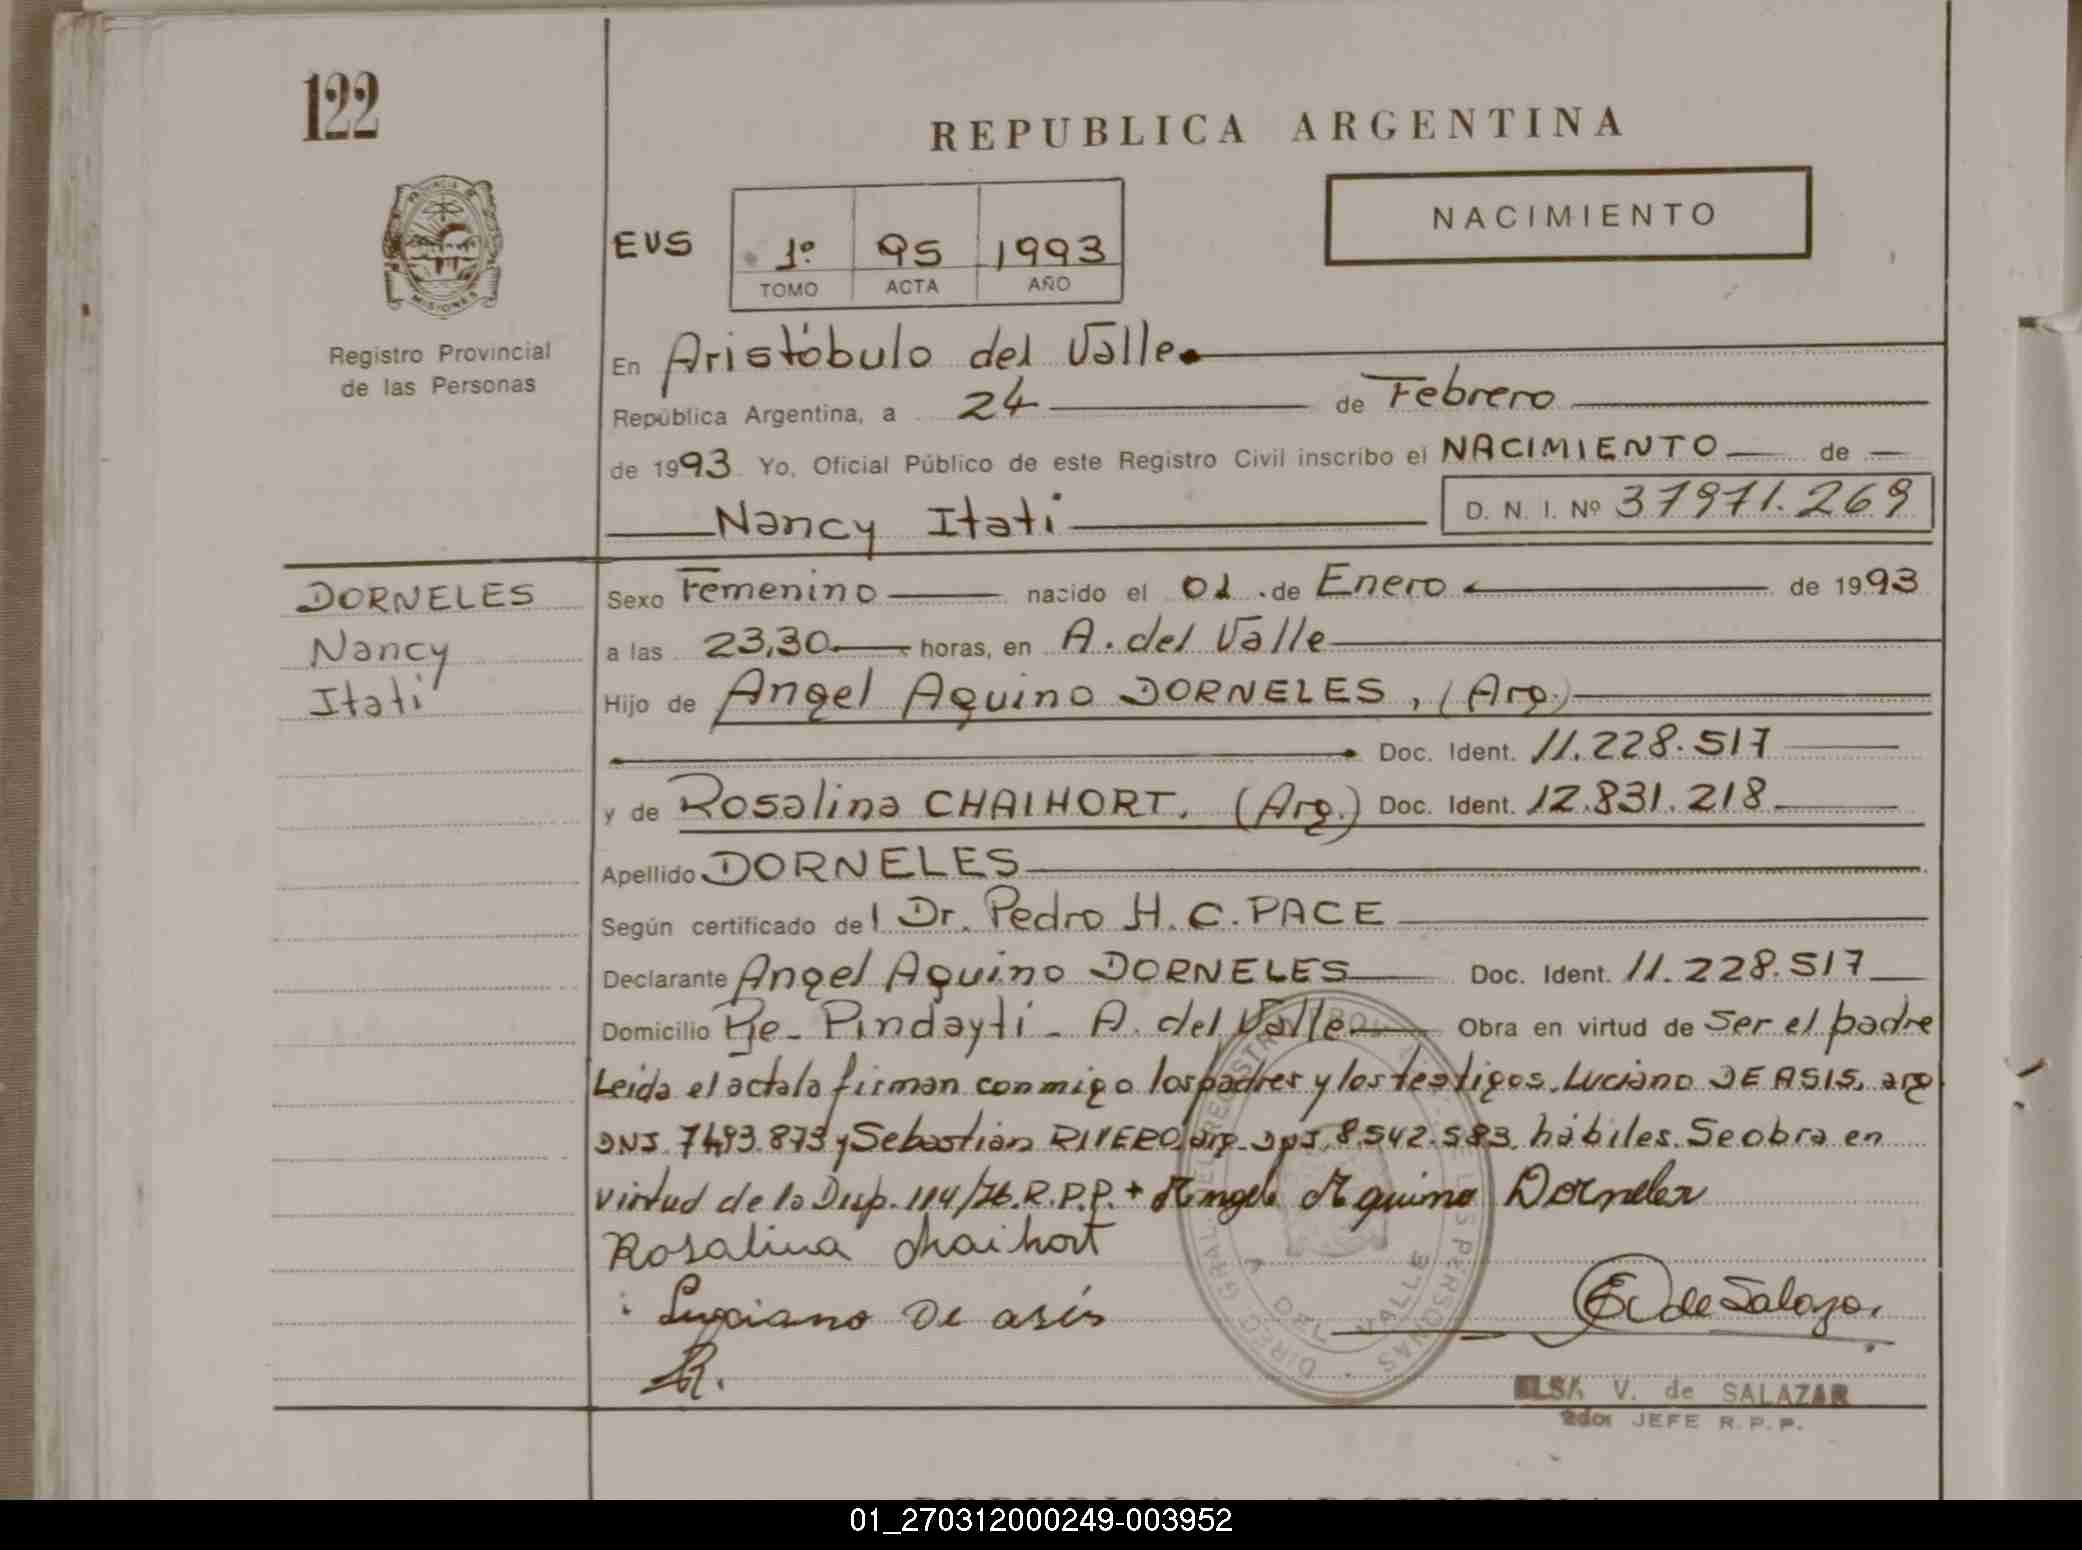 122
REPUBLICA ARGENTINA
PROVINCIA DE MISIONES
NACIMIENTO
EVS 1º 95 1993
TOMO ACTA AÑO
Registro Provincial
de las Personas
En Aristóbulo del Valle
República Argentina, a 24 de Febrero
de 1993 Yo, Oficial Público de este Registro Civil inscribo el NACIMIENTO de
Nancy Itati D. N. I. Nº 37971.269
DORNELES
Nancy
Itati
Sexo Femenino nacido el 01 de Enero de 1993
a las 23,30 horas, en A. del Valle
Hijo de Angel Aquino DORNELES, (Arg.)
Doc. Ident. 11.228.517
y de Rosalina CHAIHORT. (Arg.) Doc. Ident. 12.831.218
Apellido DORNELES
Según certificado del Dr. Pedro H. C. PACE
Declarante Angel Aquino DORNELES Doc. Ident. 11.228.517
Domicilio Pje- Pindayti - A. del Valle Obra en virtud de Ser el padre
Leida el acta la firman conmigo los padres y los testigos. Luciano DE ASIS, arg
DNI 7493.873 y Sebastián RIVERO, arg. DNI 8.542.583 hábiles. Se obra en
virtud de la Disp. 114/76. R.P.P. + Angel Aquino Dorneles
Rosalina Chaihort
Luciano De asís
R.
E V de Salazar.
DIREC. GRAL. DEL REGISTRO PROV. DE LAS PERSONAS
A. DEL VALLE
ELSA V. de SALAZAR
2do. JEFE R.P.P.
01_270312000249-003952